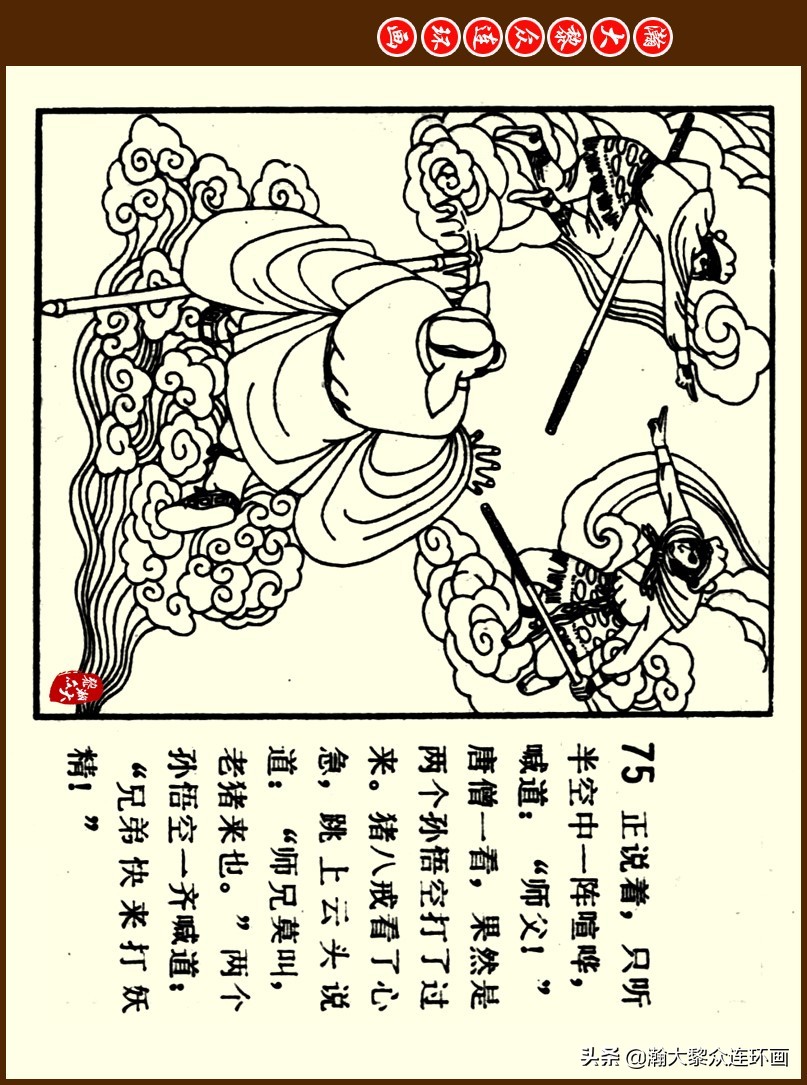 瀚大黎众连环画
瀚大
黎众
75 正说着，只听
半空中一阵喧哗，
喊道：“师父！”
唐僧一看，果然是
两个孙悟空打了过
来。猪八戒看了心
急，跳上云头说
道：“师兄莫叫，
老猪来也。”两个
孙悟空一齐喊道：
“兄弟快来打妖
精！”
头条 @瀚大黎众连环画